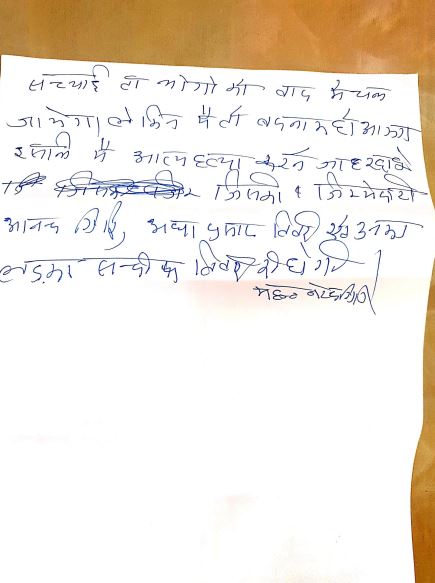 सच्चाई तो लोगो को बाद मे चल
जायेगा लेकिन मै तो बदनाम हो जाऊगा
इसलिए मै आत्म हत्या करने जा रहा हूँ
जिसकी जिम्मेदारी
आनन्द गिरि, आद्या प्रसाद तिवारी एवं उनका
लड़का सन्दीप तिवारी की होगी
महन्त नरेन्द्र गिरि